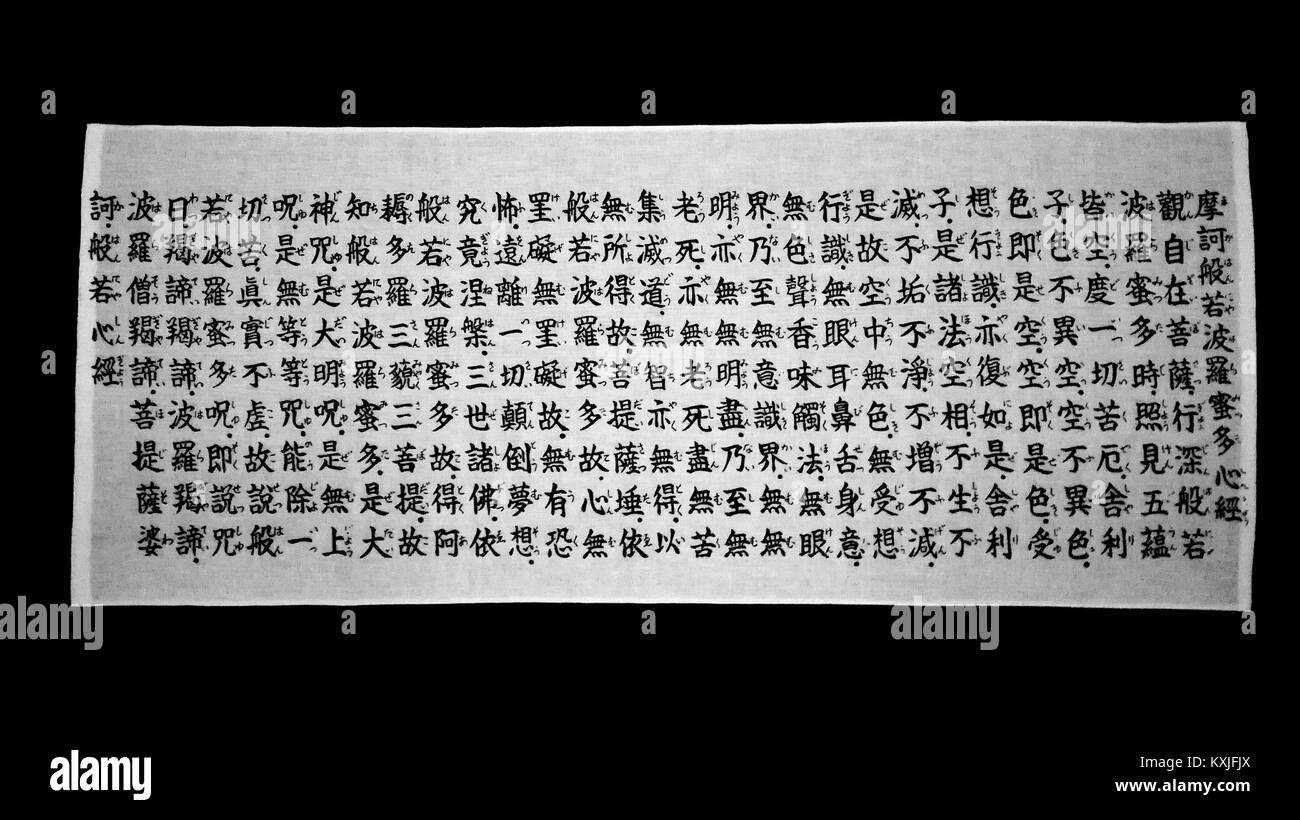 摩訶般若波羅蜜多心經
觀自在菩薩行深般若
波羅蜜多時照見五蘊
皆空度一切苦厄舍利
子色不異空空不異色
色即是空空即是色受
想行識亦復如是舍利
子是諸法空相不生不
滅不垢不淨不增不減
是故空中無色無受想
行識無眼耳鼻舌身意
無色聲香味觸法無眼
界乃至無意識界無無
明亦無無明盡乃至無
老死亦無老死盡無苦
集滅道無智亦無得以
無所得故菩提薩埵依
般若波羅蜜多故心無
罣礙無罣礙故無有恐
怖遠離一切顛倒夢想
究竟涅槃三世諸佛依
般若波羅蜜多故得阿
耨多羅三藐三菩提故
知般若波羅蜜多是大
神咒是大明呪是無上
呪是無等等咒能除一
切苦眞實不虛故說般
若波羅蜜多呪即說咒
曰羯諦羯諦波羅羯諦
波羅僧羯諦菩提薩婆
訶般若心經
a alamy stock photo
KXJFJX
www.alamy.com